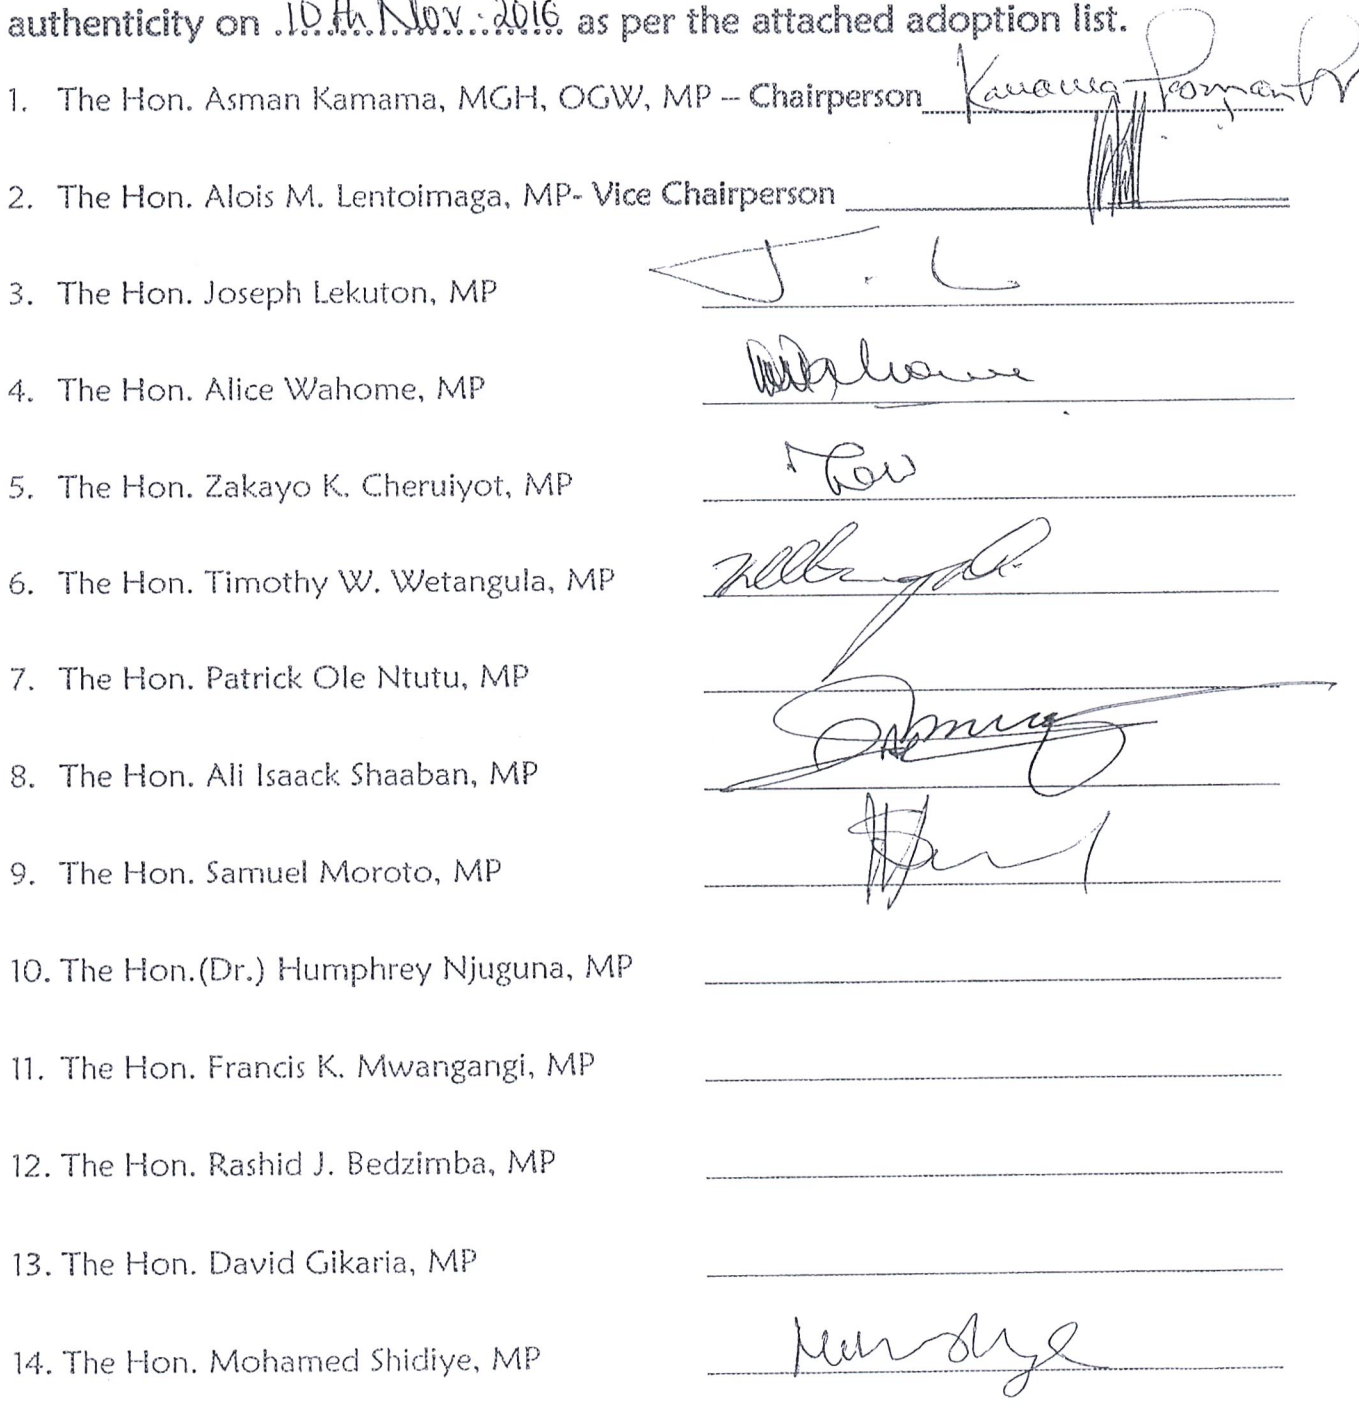 authenticity on 10th Nov. 2016 as per the attached adoption list.
1. The Hon. Asman Kamama, MGH, OGW, MP – Chairperson
2. The Hon. Alois M. Lentoimaga, MP- Vice Chairperson
3. The Hon. Joseph Lekuton, MP J. L
4. The Hon. Alice Wahome, MP
5. The Hon. Zakayo K. Cheruiyot, MP
6. The Hon. Timothy W. Wetangula, MP
7. The Hon. Patrick Ole Ntutu, MP
8. The Hon. Ali Isaack Shaaban, MP
9. The Hon. Samuel Moroto, MP
10. The Hon.(Dr.) Humphrey Njuguna, MP
11. The Hon. Francis K. Mwangangi, MP
12. The Hon. Rashid J. Bedzimba, MP
13. The Hon. David Gikaria, MP
14. The Hon. Mohamed Shidiye, MP